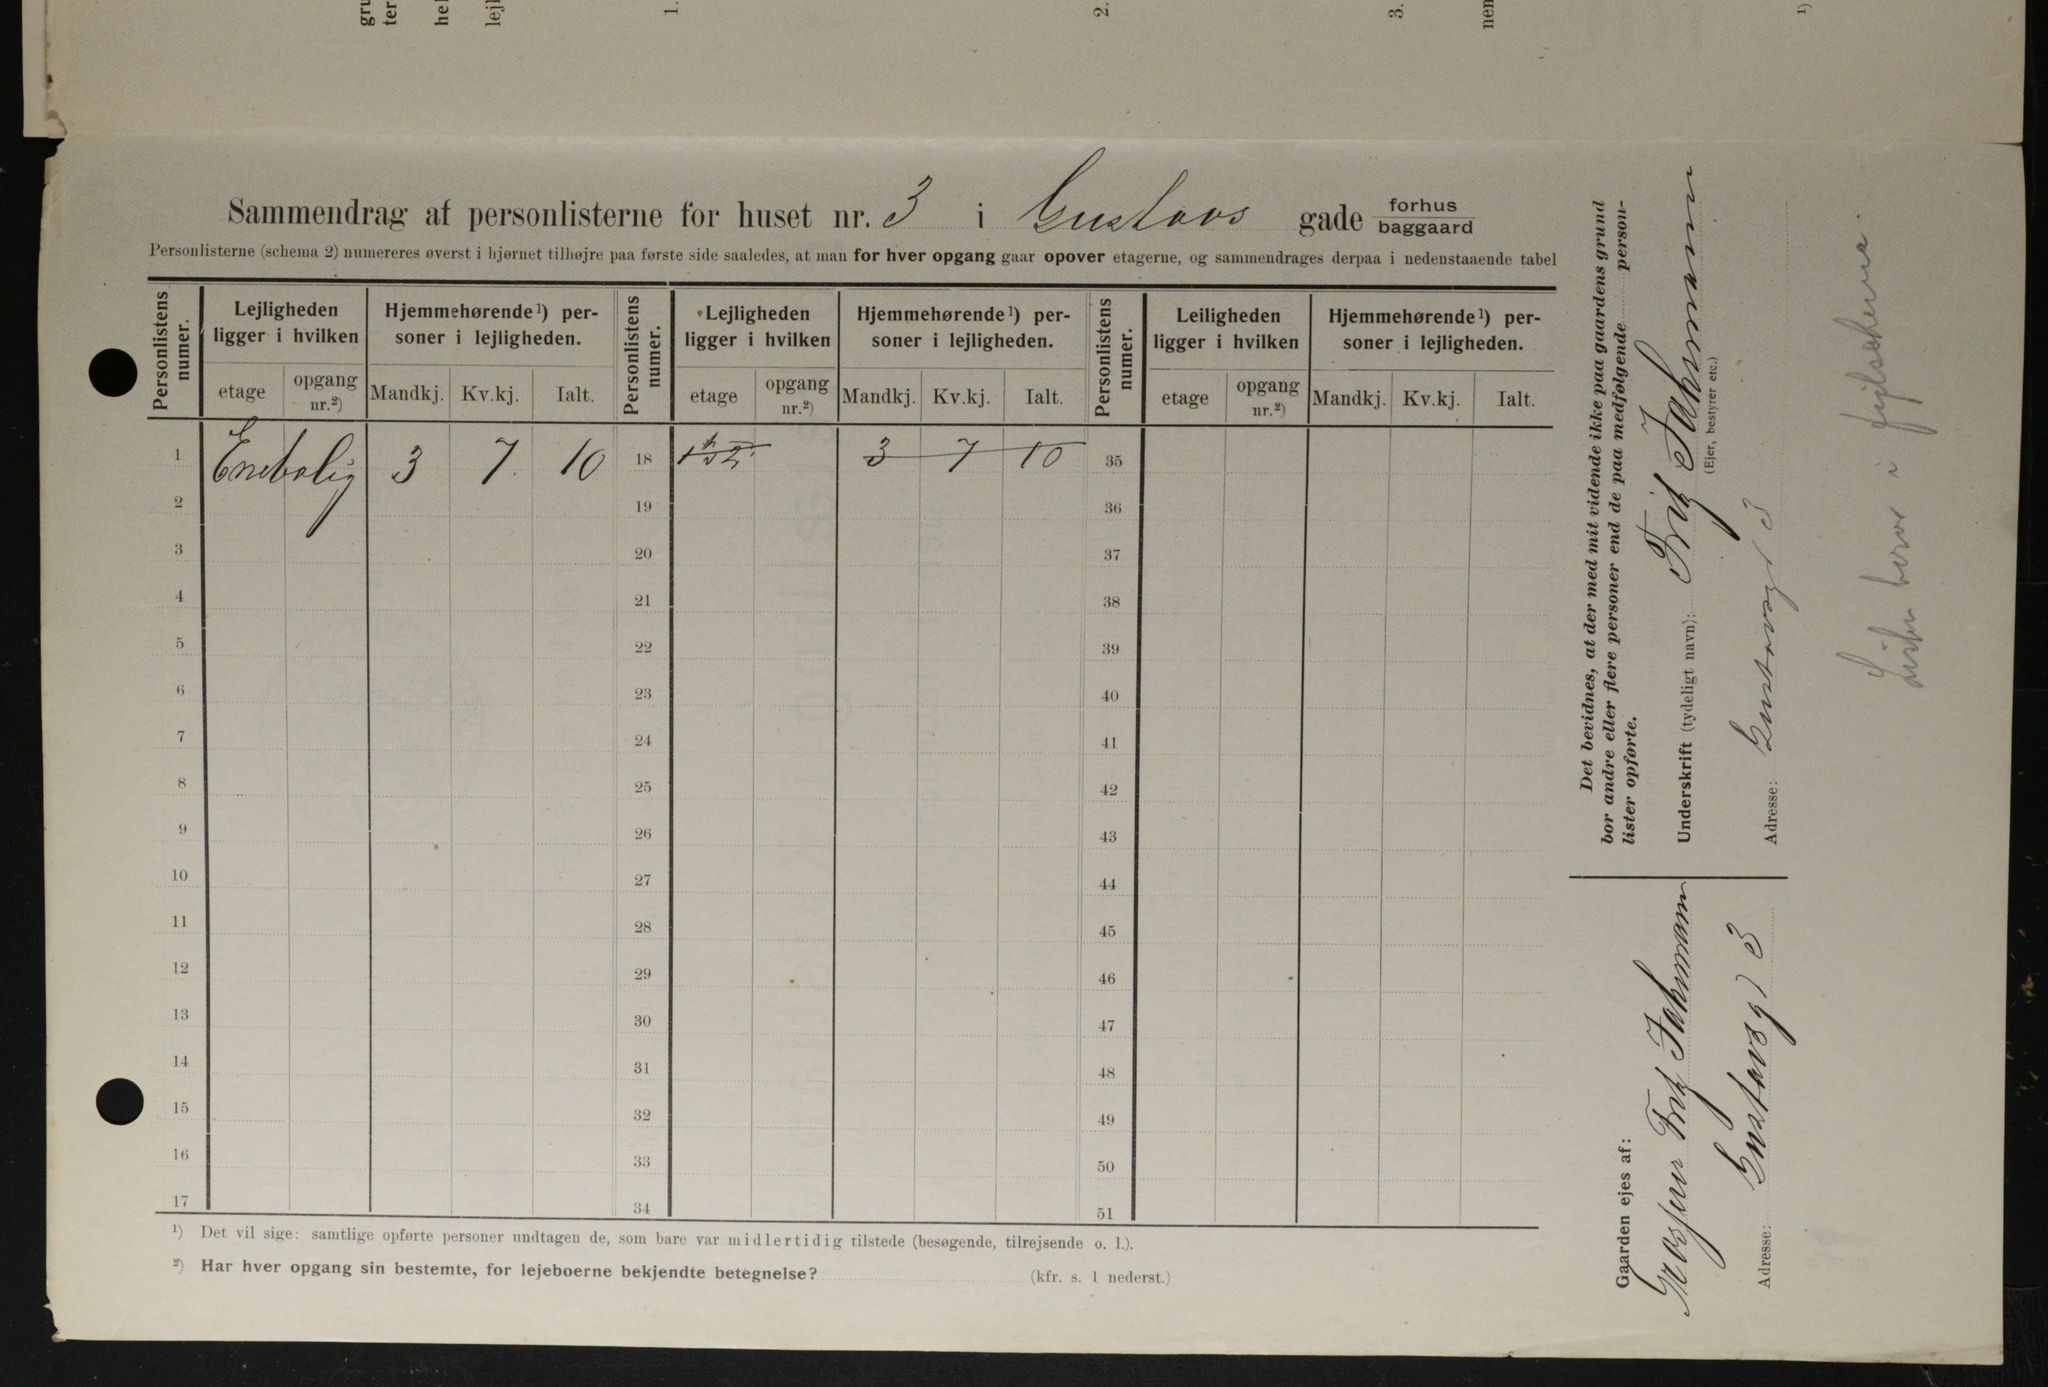 gru
ter
hel
lejl
1.
2.
3.
nem
1)
Sammendrag af personlisterne for huset nr. 3 i Gustavs gade forhus
baggaard
Personlisterne (schema 2) numereres øverst i hjørnet tilhøjre paa første side saaledes, at man for hver opgang gaar opover etagerne, og sammendrages derpaa i nedenstaaende tabel
Personlistens numer. Lejligheden ligger i hvilken Hjemmehørende ¹) personer i lejligheden. Personlistens numer. Lejligheden ligger i hvilken Hjemmehørende ¹) personer i lejligheden. Personlistens numer. Leiligheden ligger i hvilken Hjemmehørende ¹) personer i lejligheden.
etage opgang nr.²) Mandkj. Kv.kj. Ialt. etage opgang nr.²) Mandkj. Kv.kj. Ialt. etage opgang nr.²) Mandkj. Kv.kj. Ialt.
1 Enebolig 3 7 10 18 3 7 10 35
2 19 36
3 20 37
4 21 38
5 22 39
6 23 40
7 24 41
8 25 42
9 26 43
10 27 44
11 28 45
12 29 46
13 30 47
14 31 48
15 32 49
16 33 50
17 34 51
¹) Det vil sige: samtlige opførte personer undtagen de, som bare var midlertidig tilstede (besøgende, tilrejsende o. l.).
²) Har hver opgang sin bestemte, for lejeboerne bekjendte betegnelse?
(kfr. s. 1 nederst.)
Det bevidnes, at der med mit vidende ikke paa gaardens grund
bor andre eller flere personer end de paa medfølgende person-
lister opførte.
Underskrift (tydeligt navn): Fritz Jakmann
(Ejer, bestyrer etc.)
Adresse: Gustavsgd 3
Gaarden ejes af:
Grosserer Fritz Jakmann
Adresse: Gustavsgd 3
i fejlschema.